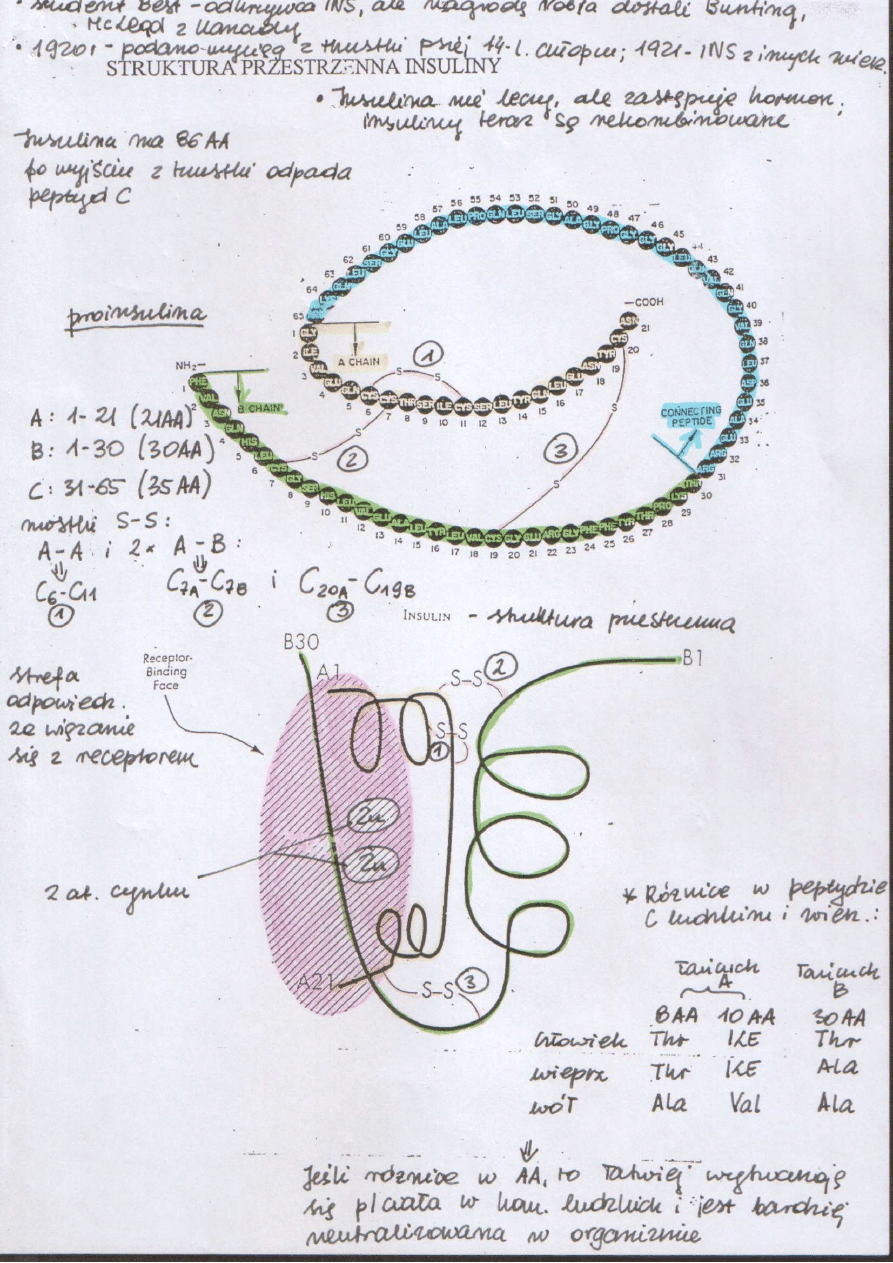 • student Best - odkrywca INS, ale nagrodę Nobla dostali Bunting,
McLeod z Kanady
• 1920r - podano wyciąg z trzustki psiej 14-l. chłopcu; 1921 - INS z innych zwierz.
STRUKTURA PRZESTRZENNA INSULINY
• Insulina nie leczy, ale zastępuje hormon;
insuliny teraz są rekombinowane
Insulina ma 86 AA
po wyjściu z trzustki odpada
peptyd C
proinsulina
A: 1-21 (21AA)
B: 1-30 (30AA)
C: 31-65 (35AA)
mostki S-S:
A-A i 2x A-B:
⇓ ⇓
C6-C11 C7A-C7B i C20A-C19B
① ② ③
65 64 63 62 61 60 59 58 57 56 55 54 53 52 51 50 49 48 47 46 45 44 43 42 41 40 39 38 37 36 35 34 33 32 31
LEU SER GLY GLU LEU ALA LEU PRO GLN LEU SER GLY ALA GLY PRO GLY GLY GLY LEU VAL GLN GLY VAL GLN LEU ASP GLU ALA GLU ARG ARG
NH₂–
1 2 3 4 5 6 7 8 9 10 11 12 13 14 15 16 17 18 19 20 21 22 23 24 25 26 27 28 29 30
PHE VAL ASN GLN HIS LEU CYS GLY SER HIS LEU VAL GLU ALA LEU TYR LEU VAL CYS GLY GLU ARG GLY PHE PHE TYR THR PRO LYS THR
B CHAIN
1 2 3 4 5 6 7 8 9 10 11 12 13 14 15 16 17 18 19 20 21
GLY ILE VAL GLU GLN CYS CYS THR SER ILE CYS SER LEU TYR GLN LEU GLU ASN TYR CYS ASN
–COOH
A CHAIN
CONNECTING
PEPTIDE
S S ①
S S ②
S S ③
INSULIN - struktura przestrzenna
B30
A1
B1
A21
S–S ②
S–S
①
S–S ③
Receptor-
Binding
Face
strefa
odpowiedz.
za wiązanie
się z receptorem
Zn
Zn
2 at. cynku
* Różnice w peptydzie
C ludzkim i zwierz.:
łańcuch A łańcuch B
8AA 10AA 30AA
człowiek Thr ILE Thr
wieprz Thr ILE Ala
wół Ala Val Ala
⇓
Jeśli różnice w AA, to łatwiej wytwarzają
się p/ciała w kom. ludzkich i jest bardziej
neutralizowana w organizmie